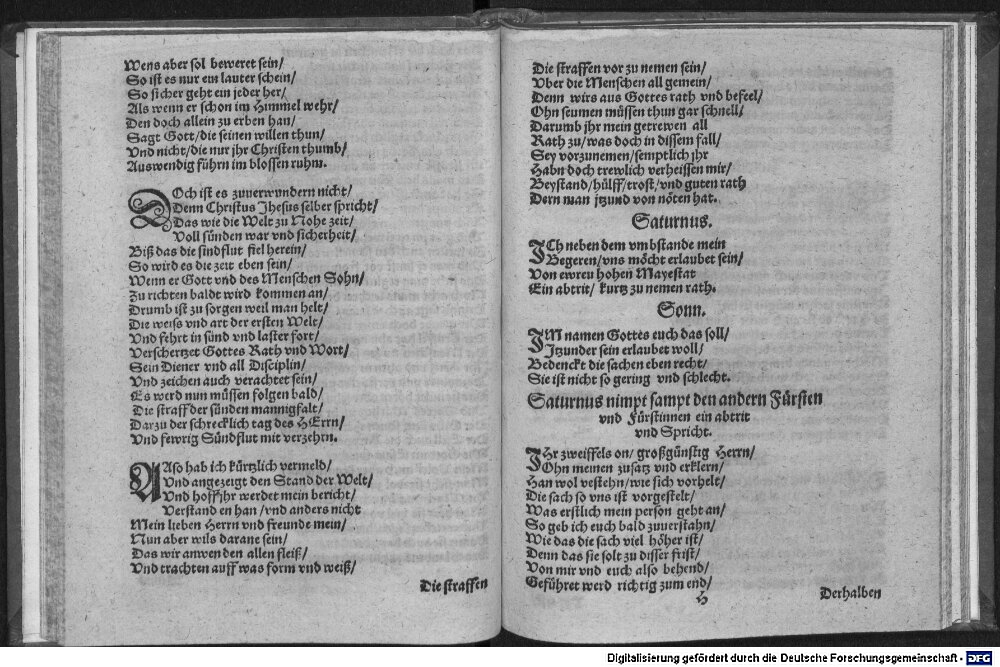 Wens aber sol beweret sein/
So ist es nur ein lauter schein/
So sicher geht ein jeder her/
Als wenn er schon im Himmel wehr/
Den doch allein zu erben han/
Sagt Gott/die seinen willen thun/
Vnd nicht/die nur jhr Christen thumb/
Auswendig führn im blossen ruhm.
DOch ist es zuuerwundern nicht/
Denn Christus Jhesus selber spricht/
Das wie die Welt zu Nohe zeit/
Voll sünden war vnd sicherheit/
Biß das die sindflut fiel herein/
So wird es die zeit eben sein/
Wenn er Gott vnd des Menschen Sohn/
Zu richten baldt wird kommen an/
Drumb ist zu sorgen weil man helt/
Die weiß vnd art der ersten Welt/
Vnd fehrt in sünd vnd laster fort/
Verschertzet Gottes Rath vnd Wort/
Sein Diener vnd all Disciplin/
Vnd zeichen auch verachtet sein/
Es werd nun müssen folgen bald/
Die straff der sünden mannigfalt/
Darzu der schrecklich tag des HErrn/
Vnd fewrig Sündflut mit verzehrn.
ALso hab ich kürtzlich vermeld/
Vnd angezeigt den Stand der Welt/
Vnd hoff jhr werdet mein bericht/
Verstanden han/vnd anders nicht
Mein lieben Herrn vnd freunde mein/
Nun aber wils darane sein/
Das wir anwenden allen fleiß/
Vnd trachten auff was form vnd weiß/
Die straffen
Die straffen vor zu nemen sein/
Vber die Menschen all gemein/
Denn wirs aus Gottes rath vnd befeel/
Ohn seumen müssen thun gar schnell/
Darumb jhr mein getrewen all
Rath zu/was doch in dissem fall/
Sey vorzunemen/semptlich jhr
Habn doch trewlich verheissen mir/
Beystand/hülff/trost/vnd guten rath
Dern man jtzund von nöten hat.
Saturnus.
ICh neben dem vmbstande mein
Begeren/vns möcht erlaubet sein/
Von ewreu hohen Mayestat
Ein abtrit/ kurtz zu nemen rath.
Sonn.
IM namen Gottes euch das soll/
Jtzunder sein erlaubet woll/
Bedenckt die sachen eben recht/
Sie ist nicht so gering vnd schlecht.
Saturnus nimpt sampt den andern Fürsten
vnd Fürstinnen ein abtrit
vnd Spricht.
IHr zweiffels on/ großgünstig Herrn/
Ohn meinen zusatz vnd erklern/
Han wol vestehn/wie sich vorhelt/
Die sach so vns ist vorgestelt/
Was erstlich mein person geht an/
So geb ich euch bald zuuerstahn/
Wie das die sach viel höher ist/
Denn das sie solt zu disser frist/
Von mir vnd euch also behend/
Geführet werd richtig zum end/
H
Derhalben
Digitalisierung gefördert durch die Deutsche Forschungsgemeinschaft - DFG